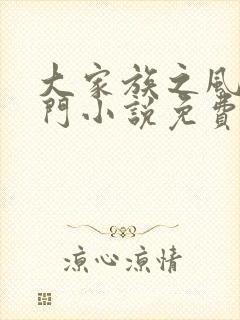 大家族之風
門小說免費
涼心涼情